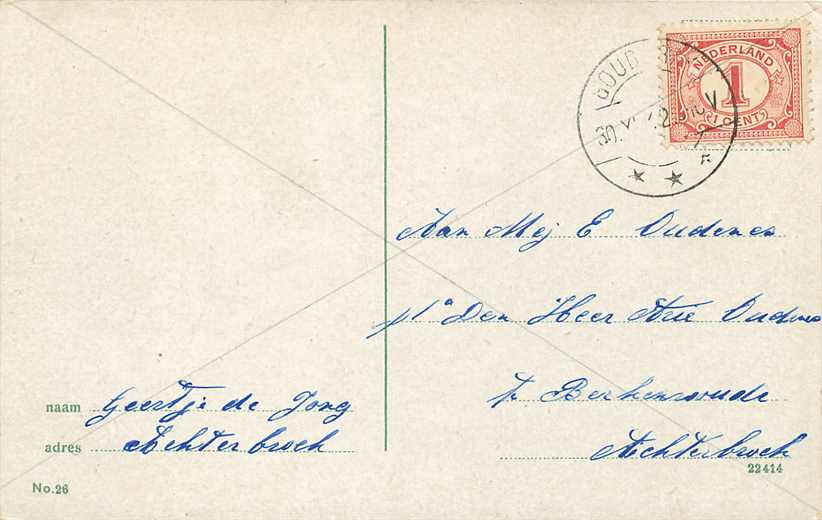 NEDERLAND
1
1 CENT
GOUD
Aan Mej E Oudenes
p/a Den Heer Arie Oudenes
te Berkenwoude
Achterbroek
22414
naam Geertje de Jong
adres Achterbroek
No.26